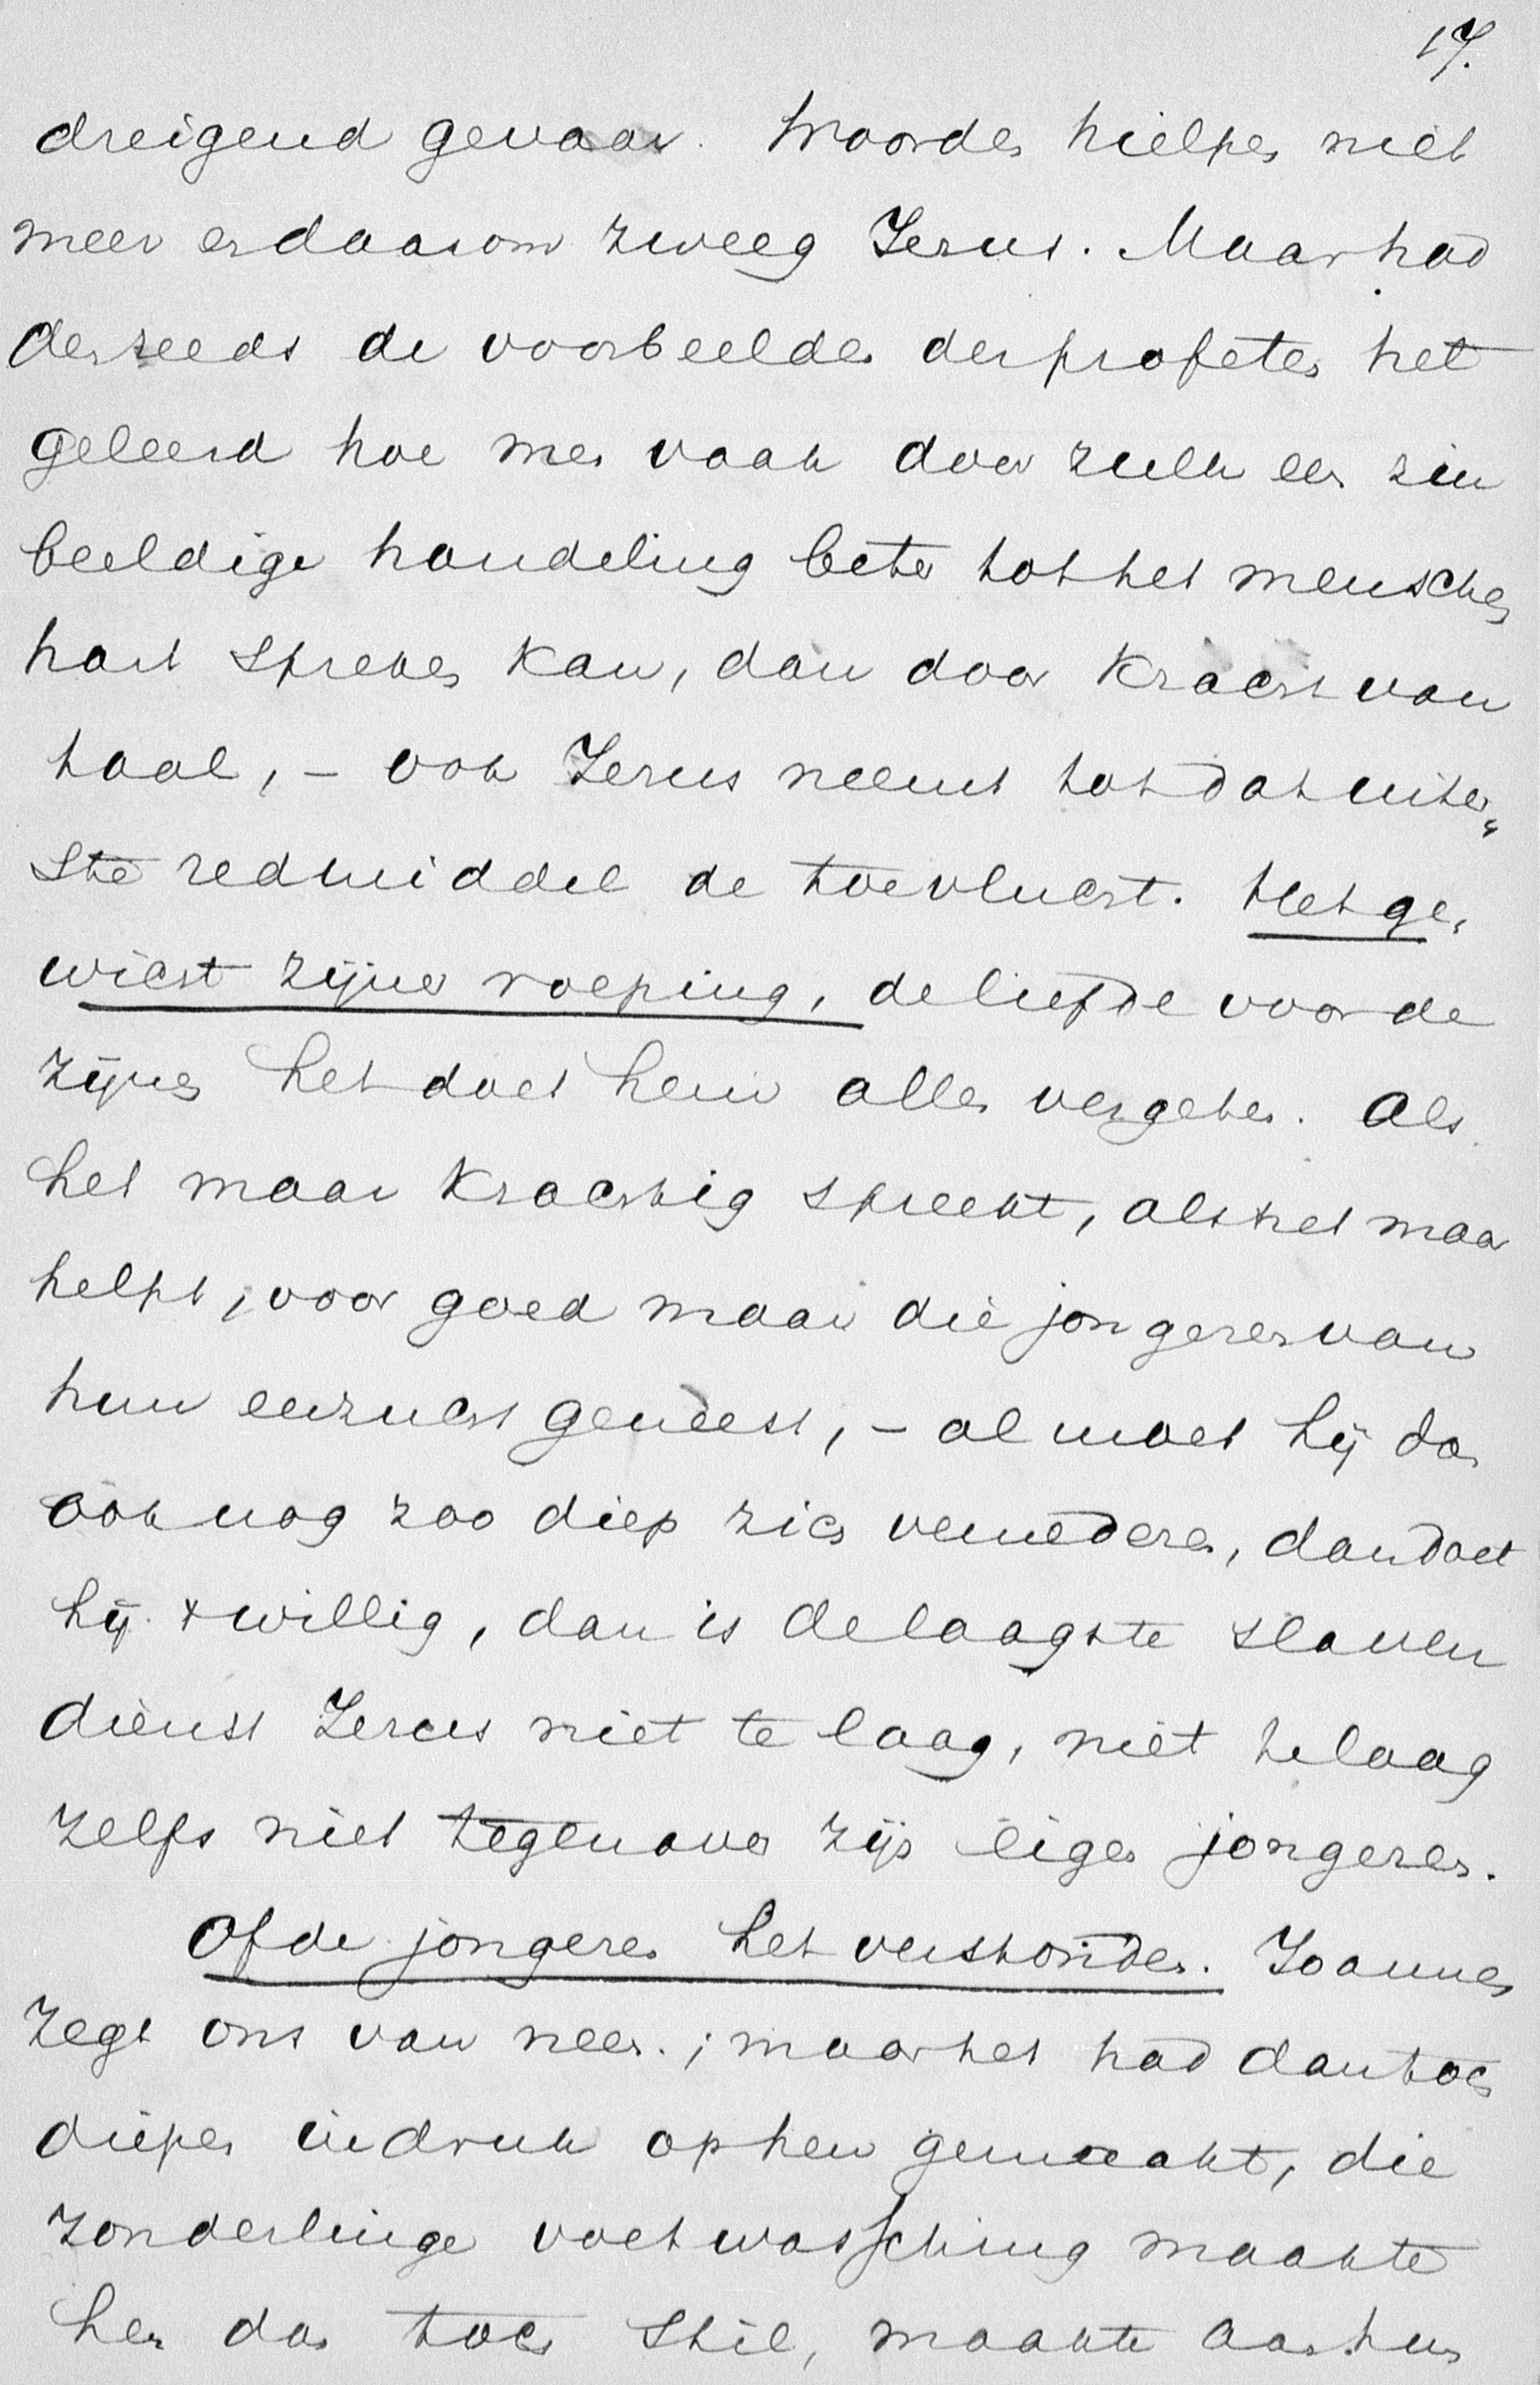 17.
dreigend gevaar. Woorden hielpen niet
meer en daarom zweeg Jezus. Maar had
den reeds de voorbeelden der profeten het
geleerd hoe men vaak door zulk een zin
beeldige handeling beter tot het menschen
hart spreken kan, dan door kracht van
taal, – ook Jezus neemt tot dat uiter„
ste redmiddel de toevlucht. Het ge„
wicht zijner roeping, de liefde voor de
zijnen het doet hem alles vergeten. Als
het maar krachtig spreekt, als het maar
helpt, voor goed maar die jongeren van
hun eerzucht geneest, – al moet hij dan
ook nog zoo diep zich vernederen, dan doet
hij 't willig, dan is de laagste slaven
dienst Jezus niet te laag, niet te laag
zelfs niet tegenover zijn eigen jongeren.
Of de jongeren het verstonden. Joannes
zegt ons van neen; maar het had dan toch
diepen indruk op hen gemaakt, die
zonderlinge voetwassching maakte
hen dan toch stil, maakte aan hun